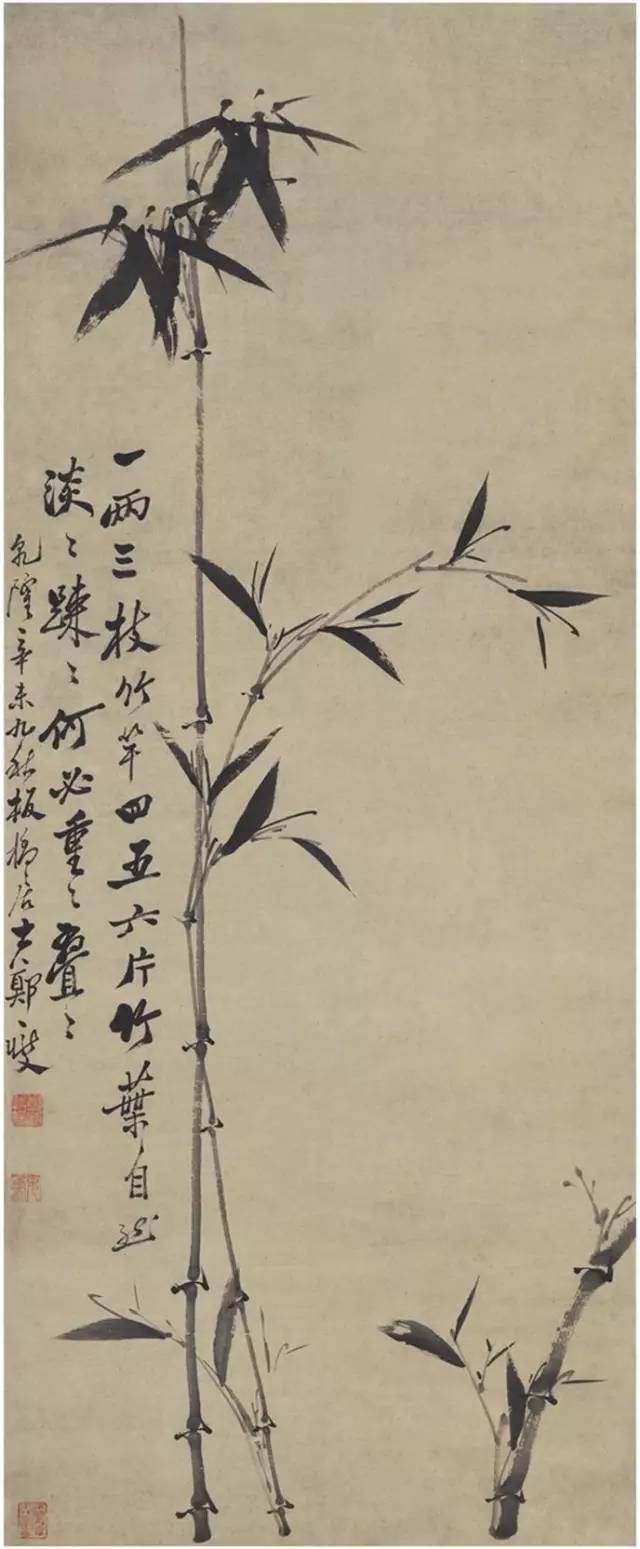 一兩三枝竹竿四五六片竹葉自然
淡〻疎〻何必重〻疊〻
乾隆辛未九秋板橋居士鄭燮